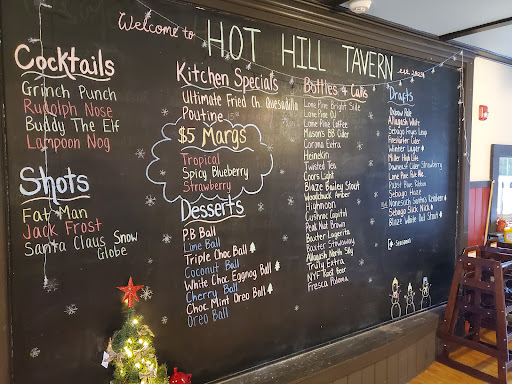 Welcome to
HOT HILL TAVERN
Cocktails
Grinch Punch
Rudolph Nose
Buddy The Elf
Lampoon Nog
Shots
Fat Man
Jack Frost
Santa Claus Snow
Globe
Kitchen Specials
Ultimate Fried Ch. Quesadilla
Poutine
$5 Margs
Tropical
Spicy Blueberry
Strawberry
Desserts
PB Ball
Lime Ball
Triple Choc Ball
Coconut Ball
White Choc Eggnog Ball
Cherry Ball
Choc Mint Oreo Ball
Oreo Ball
Bottles & Cans
Lone Pine Bright Side
Lone Pine OJ
Lone Pine Coffee
Mason's BB Cider
Corona Extra
Heinekin
Twisted Tea
Coors Light
Blaze Bailey Stout
Woodchuck Amber
Highnoon
Cushnoc Capital
Peak Nut Brown
Baxter Lagerita
Baxter Stowaway
Allagash North Sky
Truly Extra
NYF Root Beer
Fresca Paloma
Drafts
Allagash White
Sebago Fryes Leap
Winter Lager
Miller High Life
Downeast Cider Strawberry
Lone Pine
Pabst Blue Ribbon
Sebago Haze
Nonesuch Santa's Reinbeer
Sebago Slick Nick
Blaze White Out Stout